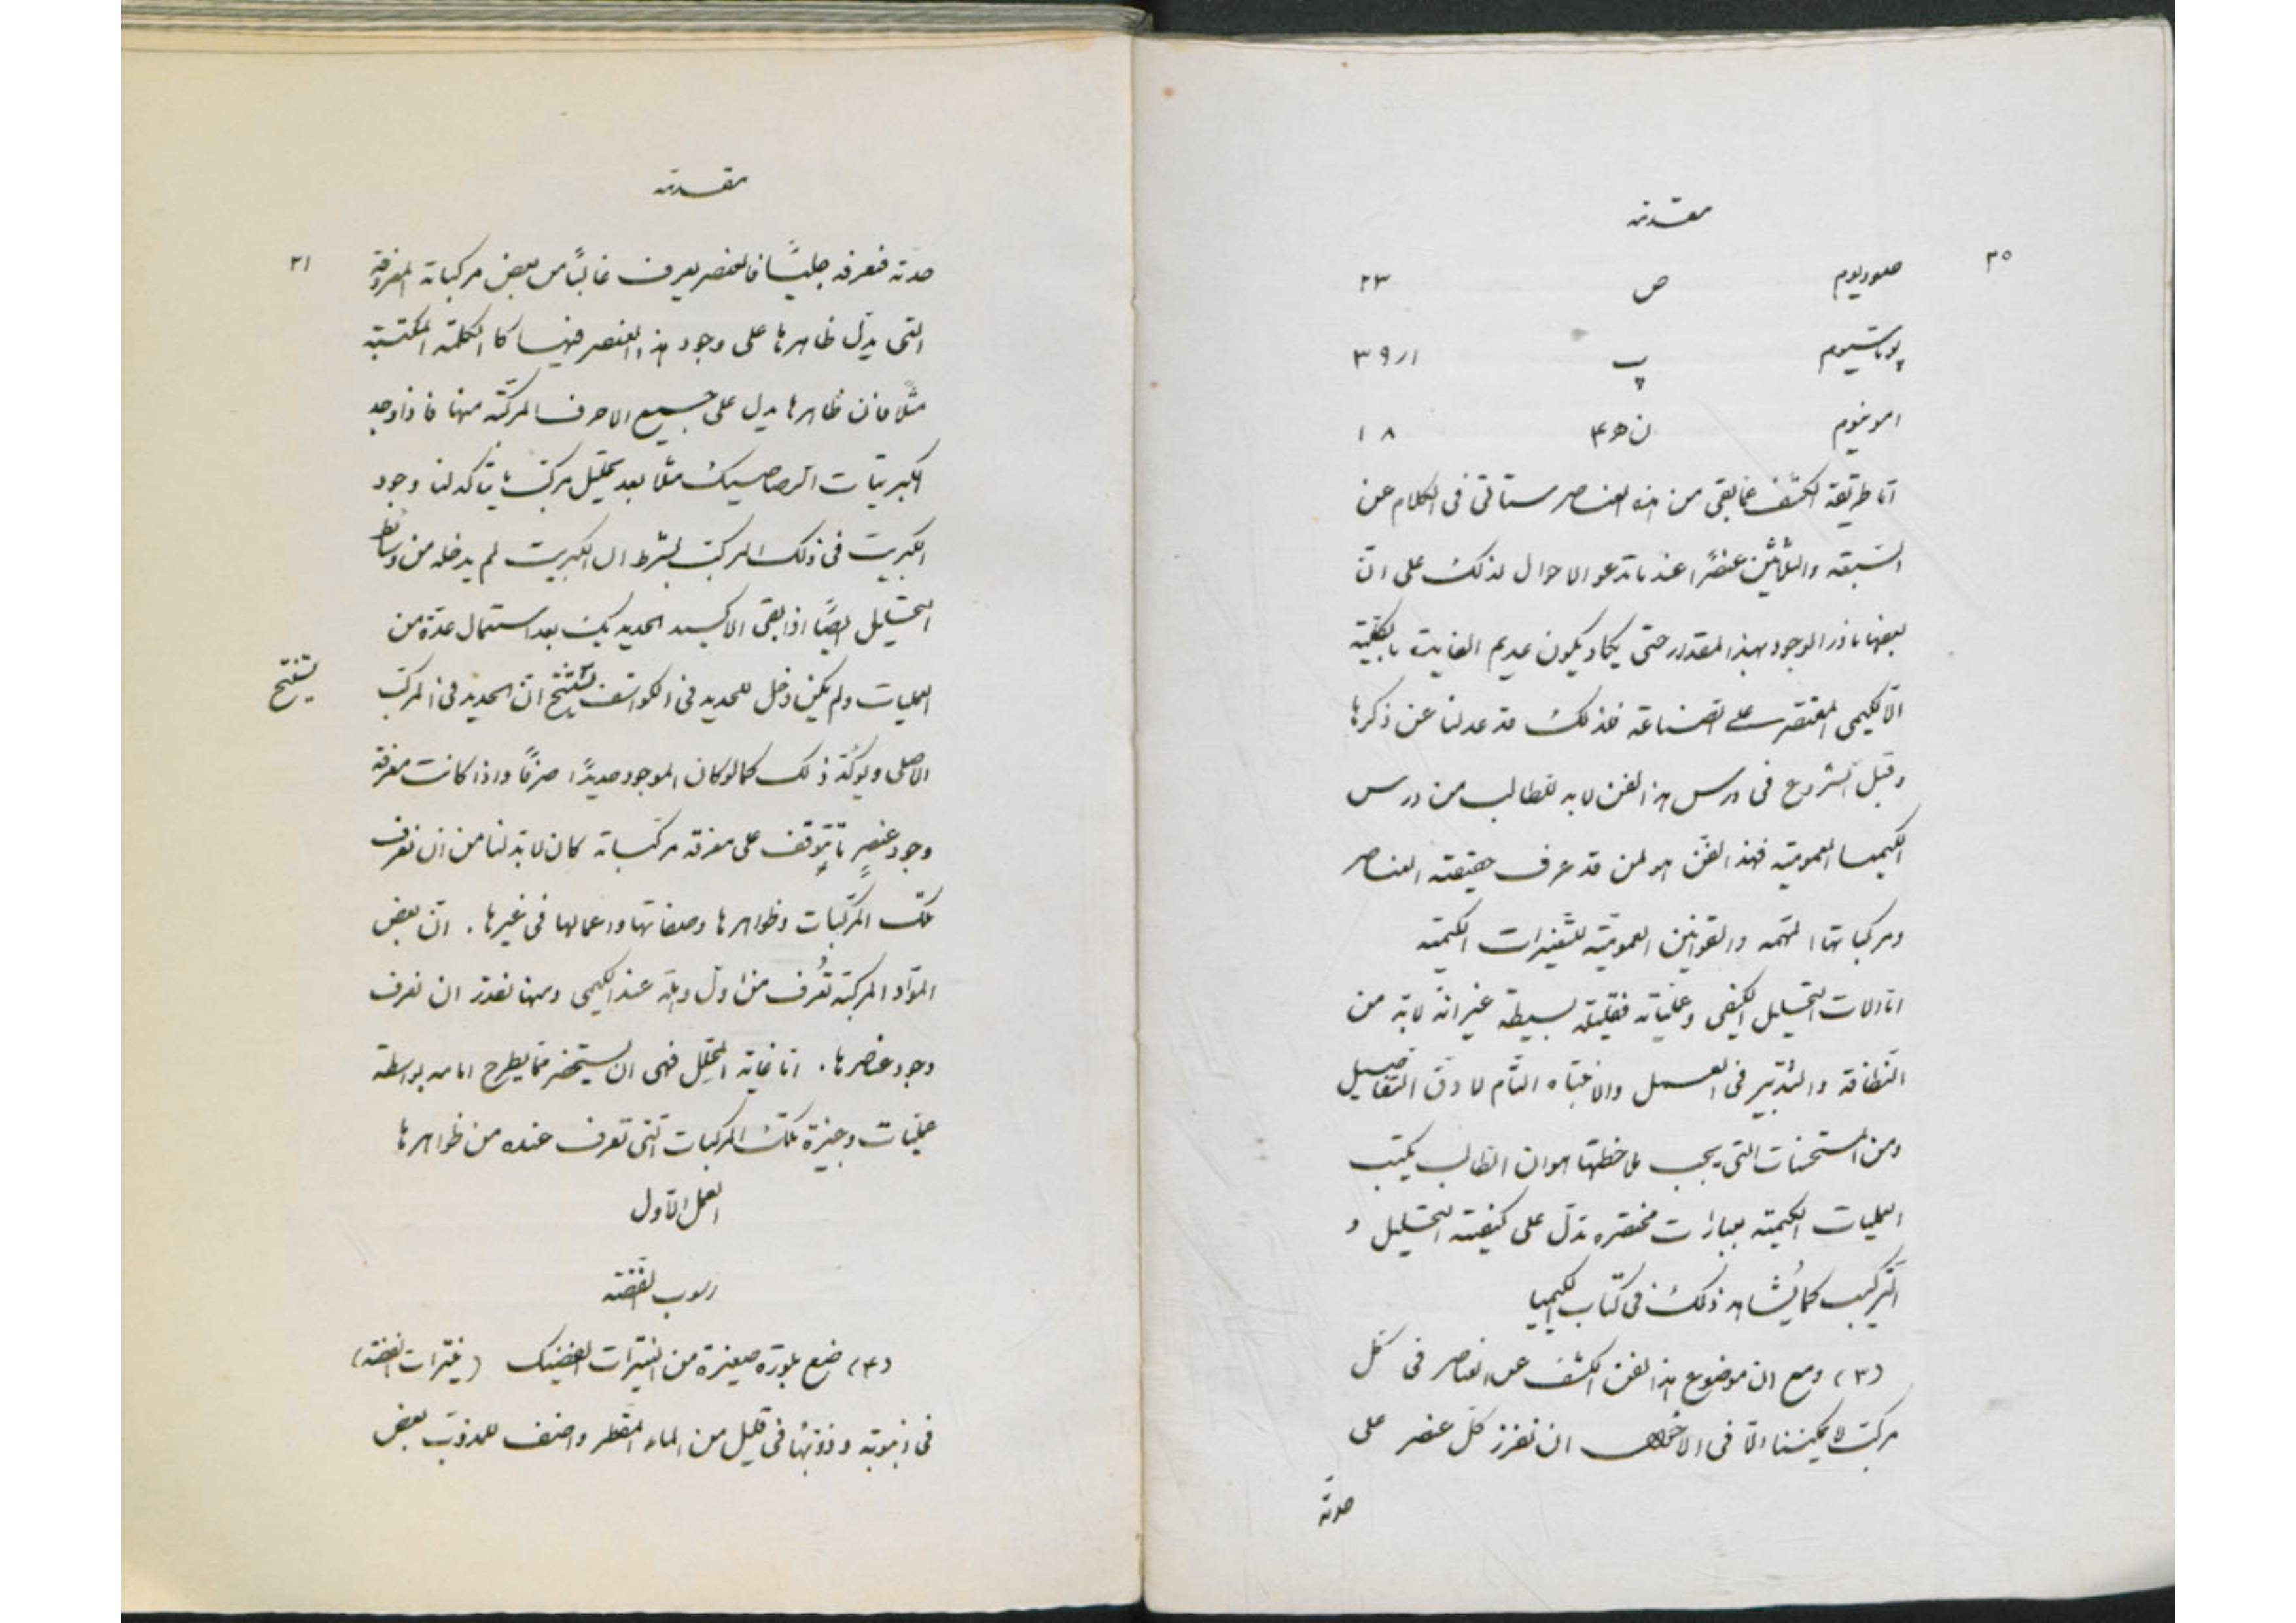 ٣٠
مقدمة
صوديوم ص ٢٣
پوتاسيوم پ ٣٩٫١
امونيوم ن ه ٤ ١٨
اما طريقة الكشف عما بقى من هذه العناصر ستاتى فى الكلام عن
السبعة والثلاثين عنصرًا عند ما تدعو الاحوال لذلك على انّ
بعضها نادر الوجود بهذا المقدار حتى يكاد يكون عديم الفايدة بالكلية
الّا لكيمى المقتصر على الصناعة فلذلك قد عدلنا عن ذكرها
وقبل الشروع فى درس هذا الفن لا بد للطالب من درس
الكيميا العمومية فهذا الفن هو لمن قد عرف حقيقة العناصر
ومركباتها المهمه والقوانين العموميّة للتغيرات الكيمية
اما الات التحليل الكيفى وعملياته فقليلة بسيطة غير انه لا بد من
النظافة والتدبير فى العمل والانتباه التام لادق التفاصيل
ومن المستحسنات التى يجب ملاحظتها هو ان الطالب يكتب
العمليات الكيمية بعبارات مختصره تدل على كيفية التحليل و
التركيب كما يُشاهد ذلك فى كتاب الكيميا
(٣) ومع ان موضوع هذا الفن الكشف عن العناصر فى كل
مركب لا يمكننا الّا فى الاخص ان نفرز كل عنصر على
حدته
مقدمة
٣١
حدته فنعرفه جليًّا فالعنصر يعرف غالبًا من بعض مركباته المعروفة
التى يدلّ ظاهرها على وجود هذا العنصر فيها كالكلمة المكتتبة
مثلًا فان ظاهرها يدل على جميع الاحرف المركبة منها فاذا وجد
الكبريتات الرصاصيك مثلًا بعد تحليل مركب ما يتاكد لنا وجود
الكبريت فى ذلك المركب بشرط ان الكبريت لم يدخله من وسائط
التحليل ايضًا اذا بقى الاكسيد الحديديك بعد استعمال عدّة من
العمليات ولم يكن دخل للحديد فى الكواشف نستنتج انّ الحديد فى المركب
نستنتج
الاصلى ويوكّد ذلك كما لو كان الموجود حديدًا صرفًا واذا كانت معرفة
وجود عنصرٍ ما تتوقف على معرفة مركباته كان لا بد لنا من ان نعرف
تلك المركّبات وظواهرها وصفاتها واعمالها فى غيرها. انّ بعض
الموّاد المركبة تُعرف من اول وهلة عند الكيمى ومنها نقدر ان نعرف
وجود عناصرها. اما غاية المحلّل فهى ان يستحضر مما يطرح امامه بواسطة
عمليات وجيزة تلك المركبات التى تعرف عنده من ظواهرها
العمل الاول
رسوب الفضة
(٤) ضع بلورة صغيرة من النيترات الفضيك (نيترات الفضة)
فى انبوبة وذوّبها فى قليل من الماء المقطر واضف للمذوّب بعض